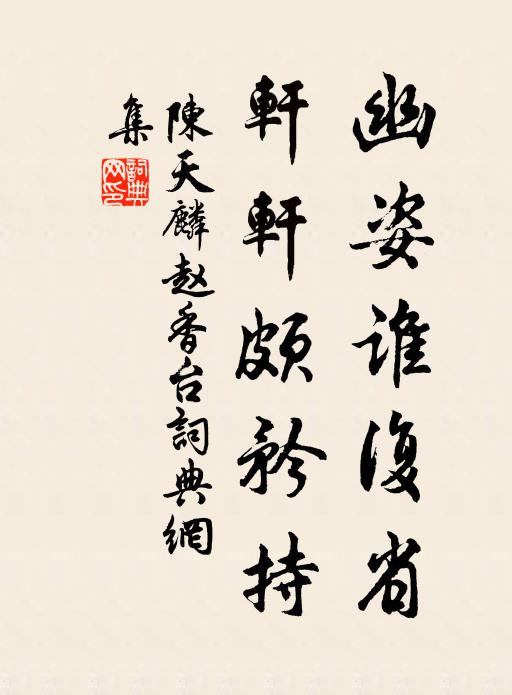 幽姿谁復省
軒軒頗矜持
陳天麟赵香台詞典網
集
詞典網印